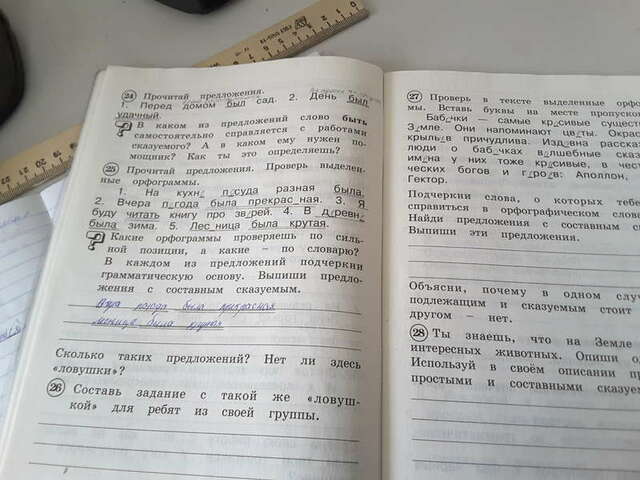 24 Прочитай предложения.
1. Перед домом был сад. 2. День был
удачный.
В каком из предложений слово быть
самостоятельно справляется с работами
сказуемого? А в каком ему нужен по-
мощник? Как ты это определяешь?
25 Прочитай предложения. Проверь выделен-
ные орфограммы.
1. На кухн_ п_суда разная была.
2. Вчера п_года была прекрас_ная. 3. Я
буду читать книгу про зв_рей. 4. В д_ревн_
была зима. 5. Лес_ница была крутая.
Какие орфограммы проверяешь по силь-
ной позиции, а какие – по словарю?
В каждом из предложений подчеркни
грамматическую основу. Выпиши предло-
жения с составным сказуемым.
погода была прекрасная
была крутая
Сколько таких предложений? Нет ли здесь
«ловушки»?
26 Составь задание с такой же «ловуш-
кой» для ребят из своей группы.
27 Проверь в тексте выделенные орфогр
мы. Вставь буквы на месте пропусков
Баб_чки — самые кр_сивые сущест
З_мле. Они напоминают цв_ты. Окрас
крыль_в причудлива. Изд_вна расска
люди о баб_чках в_лшебные сказ
им_на у них тоже кр_сивые, в чест
ческих богов и г_ро_в: Аполлон,
Гектор.
Подчеркни слова, о которых тебе
справиться в орфографическом слов
Найди предложения с составным с
Выпиши эти предложения.
Объясни, почему в одном случ
подлежащим и сказуемым стоит
другом — нет.
28 Ты знаешь, что на Земле
интересных животных. Опиши о
Используй в своём описании пр
простыми и составными сказуе